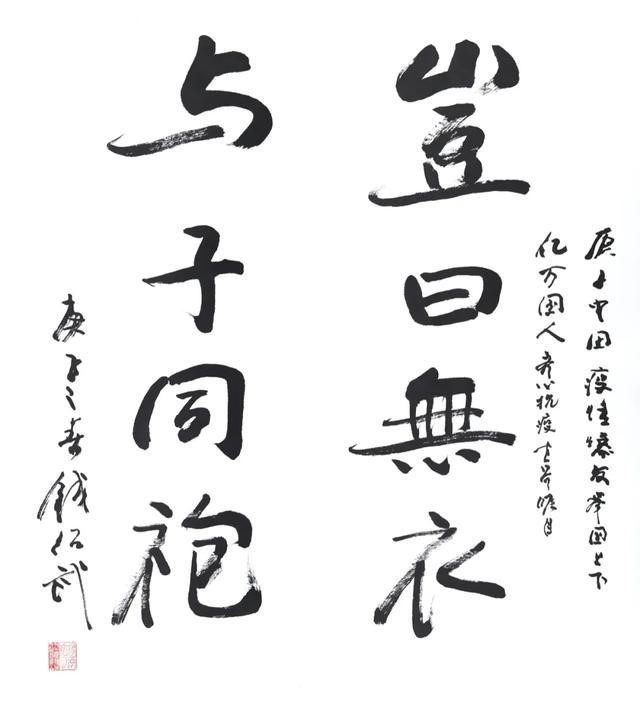 庚子中国疫情爆发举国上下
亿万国人齐心抗疫瞩目
豈曰無衣
与子同袍
庚子之春钱绍武